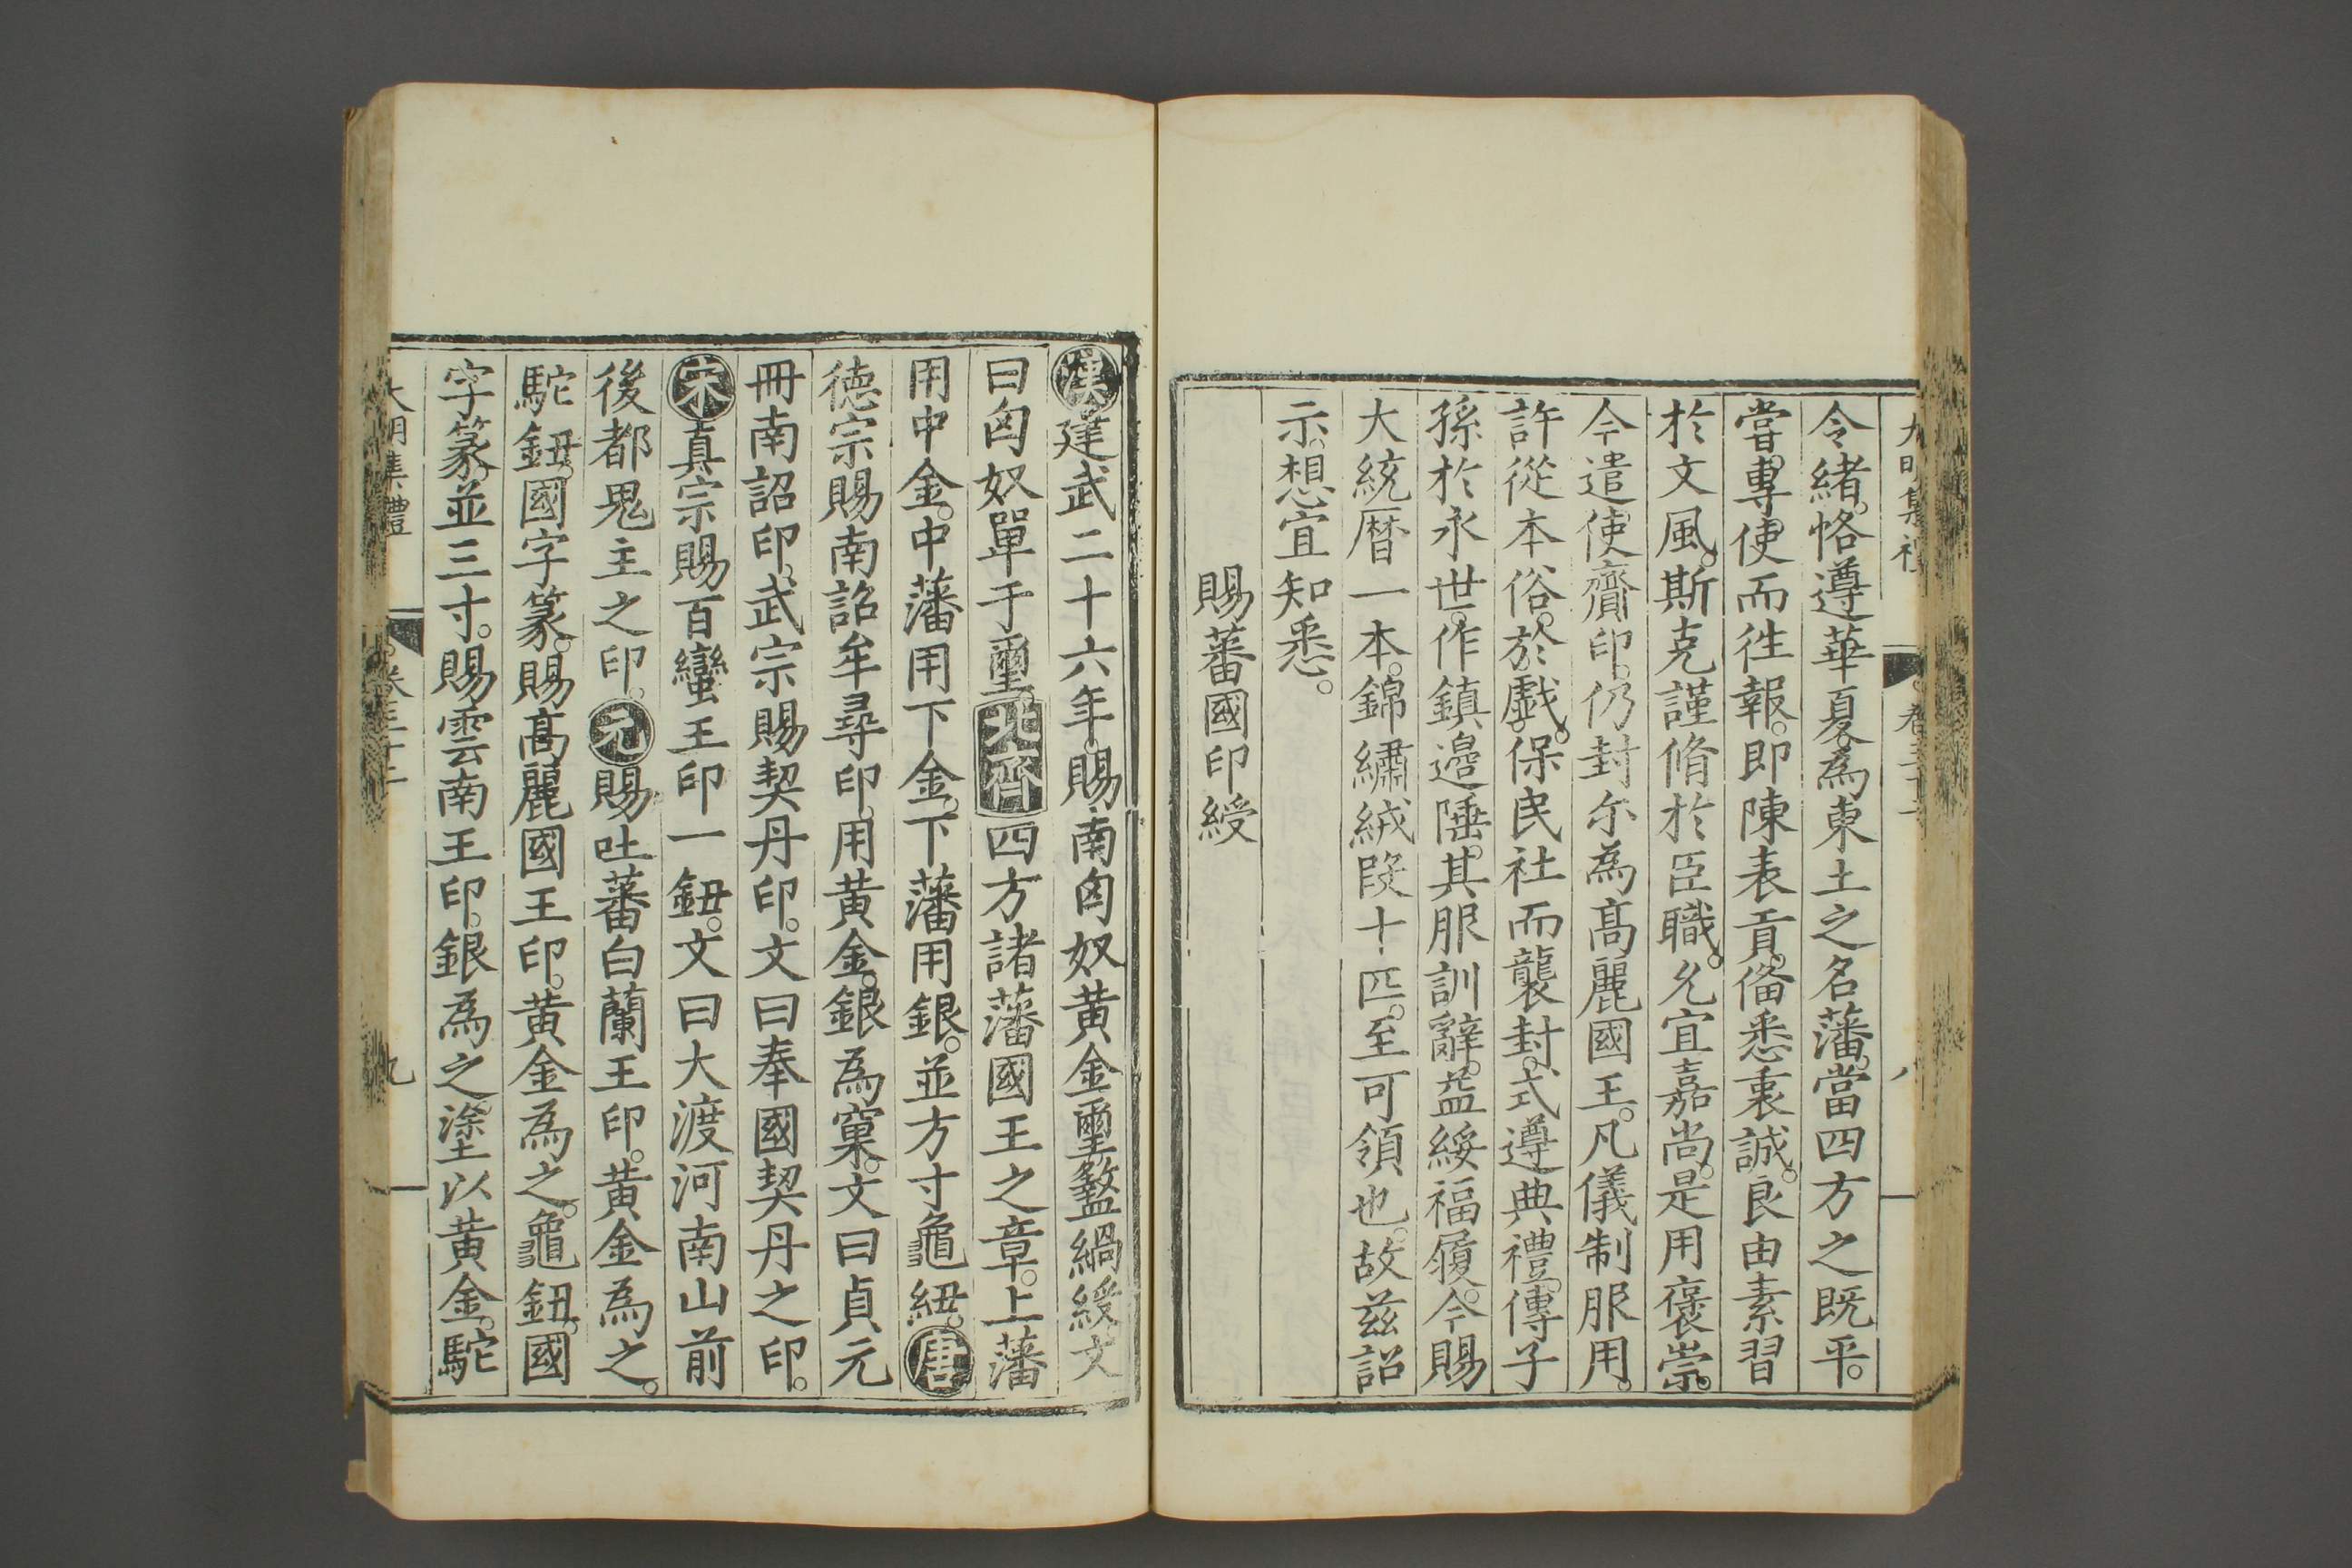 大明集禮 卷三十二 八
令緒。恪遵華夏。為東土之名藩。當四方之既平。
嘗專使而徃報。即陳表貢。俻悉衷誠。良由素習
於文風。斯克謹脩於臣職。允宜嘉尚。是用褒崇。
今遣使齎印。仍封尔為髙麗國王。凡儀制服用。
許從本俗。於戲。保民社而襲封。式遵典禮。傳子
孫於永世。作鎮邉陲。其服訓辭。益綏福履。今賜
大統暦一本。錦繡絨段十匹。至可領也。故兹詔
示。想宜知悉。
賜蕃國印綬
漢建武二十六年。賜南匈奴黄金璽盭緺綬文
曰匈奴單于璽北齊四方諸藩國王之章。上藩
用中金。中藩用下金。下藩用銀。並方寸龜紐。唐
德宗賜南詔牟尋印。用黄金。銀為窠。文曰貞元
冊南詔印。武宗賜契丹印。文曰奉國契丹之印。
宋真宗賜百蠻王印一鈕。文曰大渡河南山前
後都鬼主之印。元賜吐蕃白蘭王印。黄金為之。
駝鈕。國字篆。賜髙麗國王印。黄金為之。龜鈕。國
字篆。並三寸。賜雲南王印。銀為之塗以黄金。駝
大明集禮 卷三十二 九